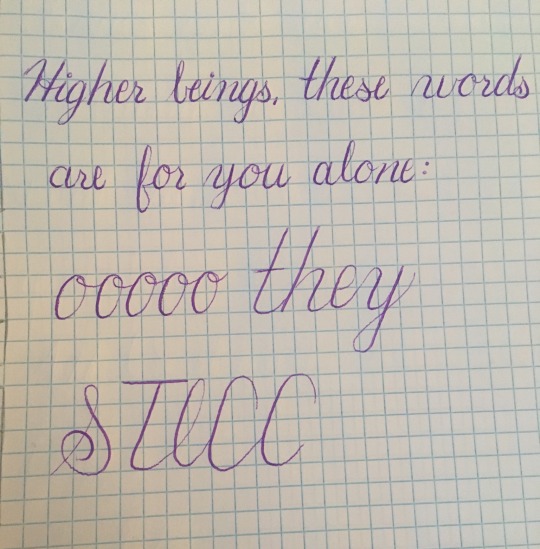 Higher beings, these words
are for you alone:
ooooo they
STICC